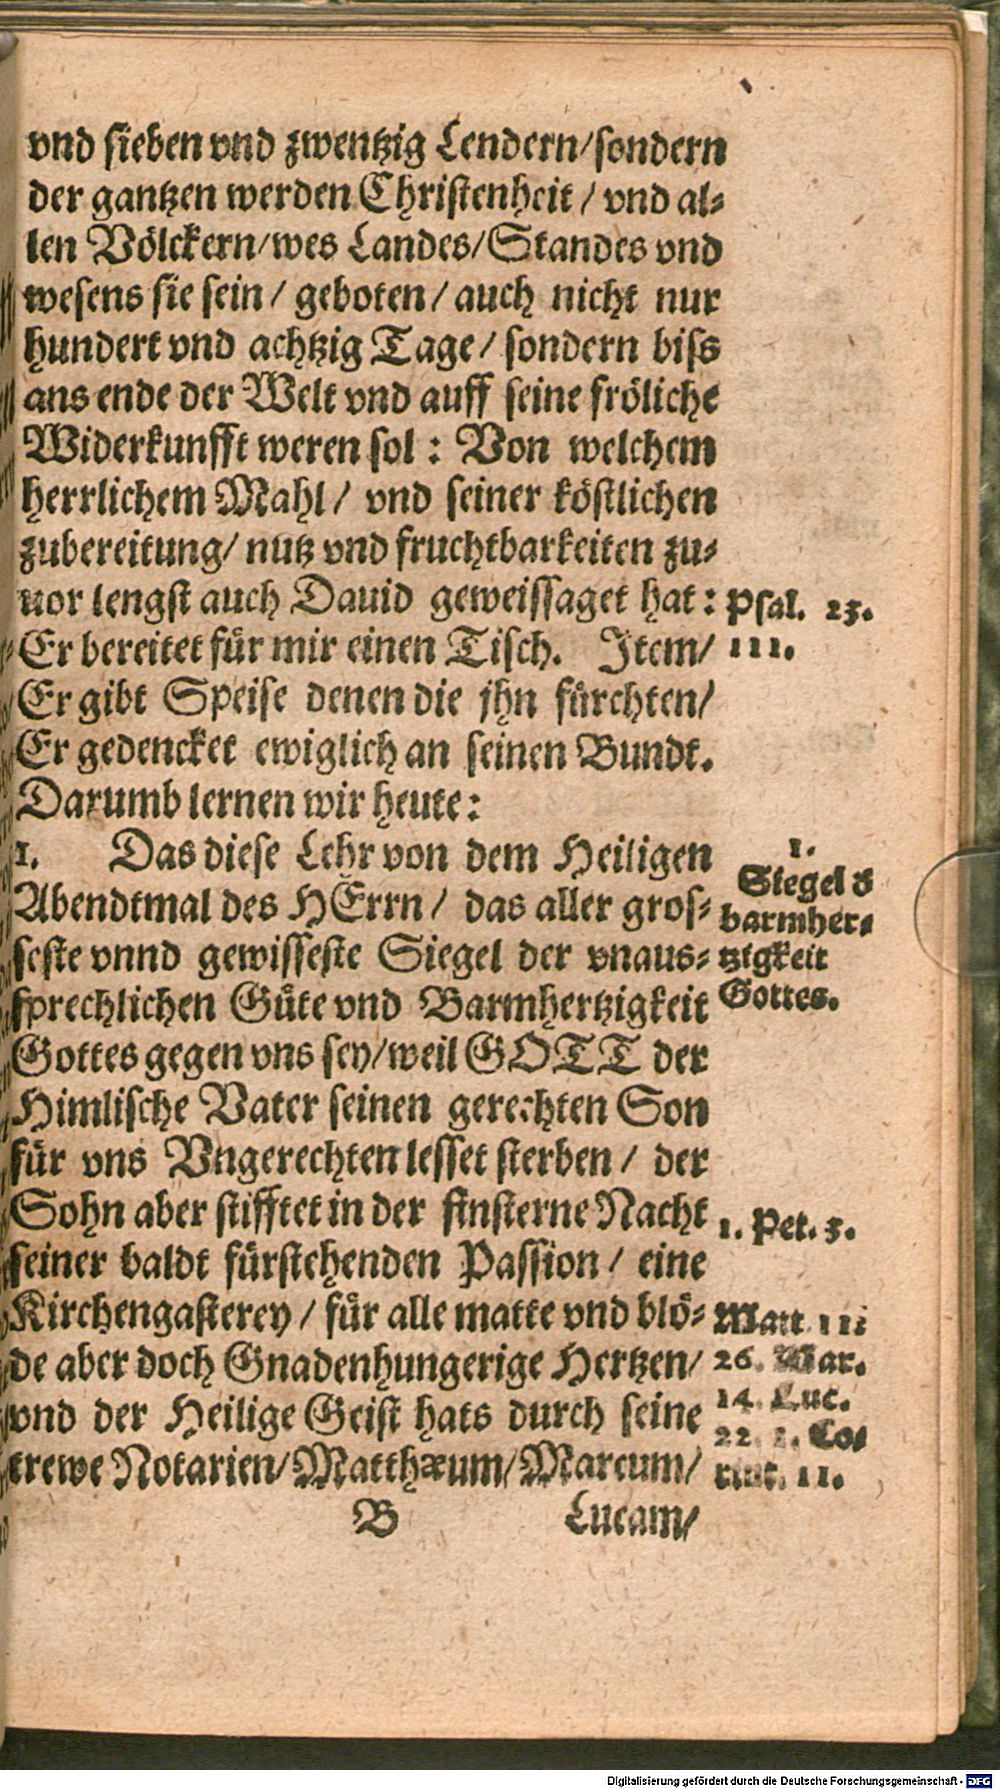 vnd sieben vnd zwentzig Lendern/sondern
der gantzen werden Christenheit / vnd al-
len Völckern/wes Landes/Standes vnd
wesens sie sein / geboten / auch nicht nur
hundert vnd achtzig Tage / sondern biss
ans ende der Welt vnd auff seine fröliche
Widerkunfft weren sol : Von welchem
herrlichem Mahl / vnd seiner köstlichen
zubereitung/ nutz vnd fruchtbarkeiten zu-
uor lengst auch Dauid geweissaget hat :
Psal. 23.
Er bereitet für mir einen Tisch. Item/
111.
Er gibt Speise denen die jhn fürchten/
Er gedencket ewiglich an seinen Bundt.
Darumb lernen wir heute :
1. Das diese Lehr von dem Heiligen
Abendtmal des HErrn / das aller gros-
seste vnnd gewisseste Siegel der vnaus-
sprechlichen Güte vnd Barmhertzigkeit
1.
Siegel d
barmher-
tzigkeit
Gottes.
Gottes gegen vns sey/weil GOTT der
Himlische Vater seinen gerechten Son
für vns Vngerechten lesset sterben / der
Sohn aber stifftet in der finsterne Nacht
1. Pet. 3.
seiner baldt fürstehenden Passion / eine
Kirchengasterey / für alle matte vnd blö-
de aber doch Gnadenhungerige Hertzen/
vnd der Heilige Geist hats durch seine
trewe Notarien/Matthæum/Marcum/
Matt
26. Mar.
14. Luc.
22. 1. Co-
rint. 11.
B
Lucam/
Digitalisierung gefördert durch die Deutsche Forschungsgemeinschaft - DFG